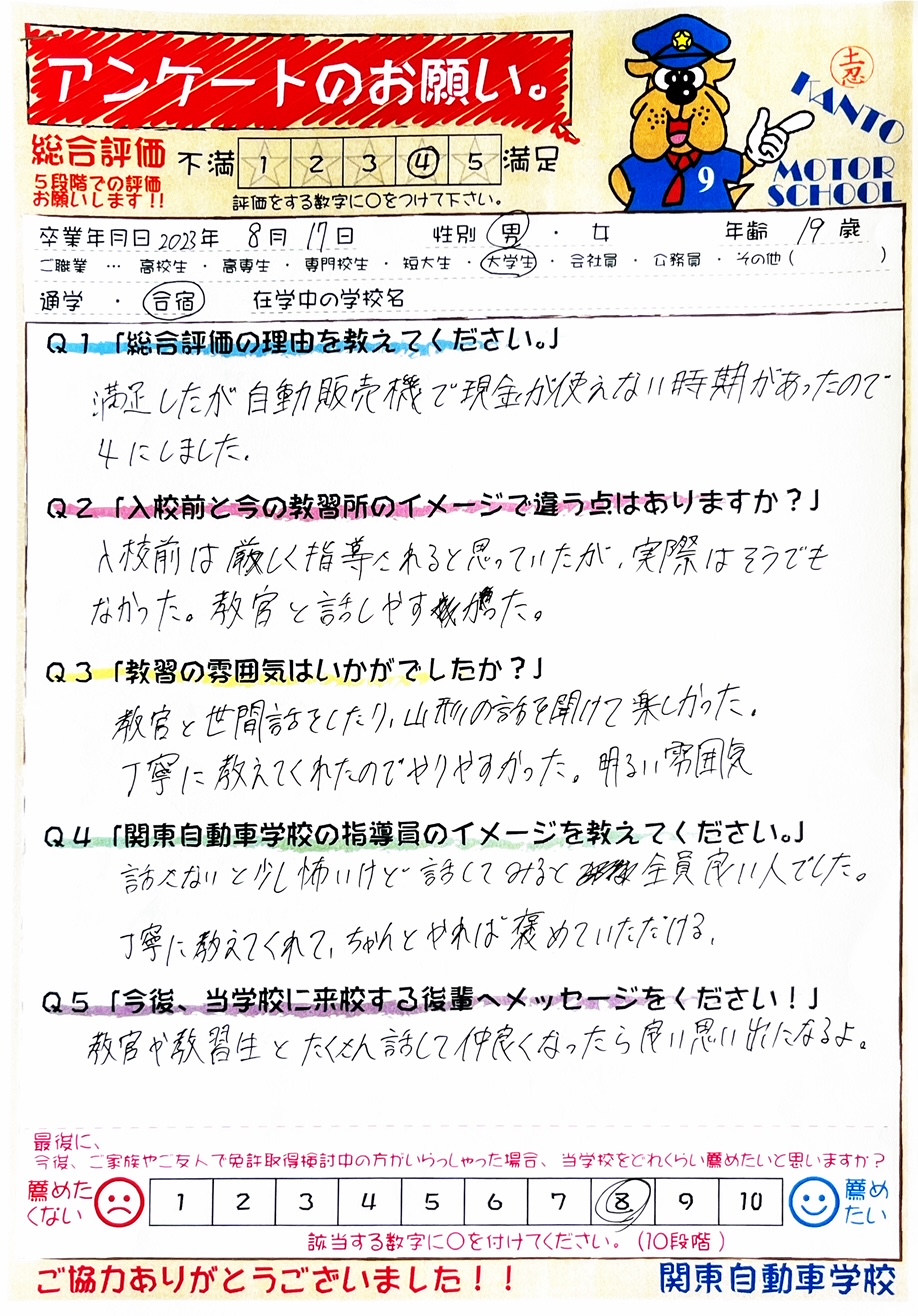 アンケートのお願い。
総合評価 不満 1 2 3 4 5 満足
5段階での評価
お願いします!!
評価をする数字に○をつけて下さい。
KANTO
MOTOR
SCHOOL
9
卒業年月日 2023年 8月 17日 性別 男 ・ 女 年齢 19 歳
ご職業 … 高校生 ・ 高専生 ・ 専門校生 ・ 短大生 ・ 大学生 ・ 会社員 ・ 公務員 ・ その他 ( )
通学 ・ 合宿 在学中の学校名
Q1「総合評価の理由を教えてください。」
満足したが自動販売機で現金が使えない時期があったので
4にしました。
Q2「入校前と今の教習所のイメージで違う点はありますか?」
入校前は厳しく指導されると思っていたが、実際はそうでも
なかった。教官と話しやす た。
Q3「教習の雰囲気はいかがでしたか?」
教官と世間話をしたり、山形の話を聞けて楽しかった。
丁寧に教えてくれたのでやりやすかった。明るい雰囲気
Q4「関東自動車学校の指導員のイメージを教えてください。」
話さないと少し怖いけど話してみると 全員良い人でした。
丁寧に教えてくれて、ちゃんとやれば褒めていただける、
Q5「今後、当学校に来校する後輩へメッセージをください!」
教官や教習生とたくさん話して仲良くなったら良い思い出になるよ。
最後に、
今後、ご家族やご友人で免許取得検討中の方がいらっしゃった場合、当学校をどれくらい薦めたいと思いますか?
薦めた
くない
1 2 3 4 5 6 7 8 9 10
薦め
たい
該当する数字に○を付けてください。(10段階)
ご協力ありがとうございました!!
関東自動車学校